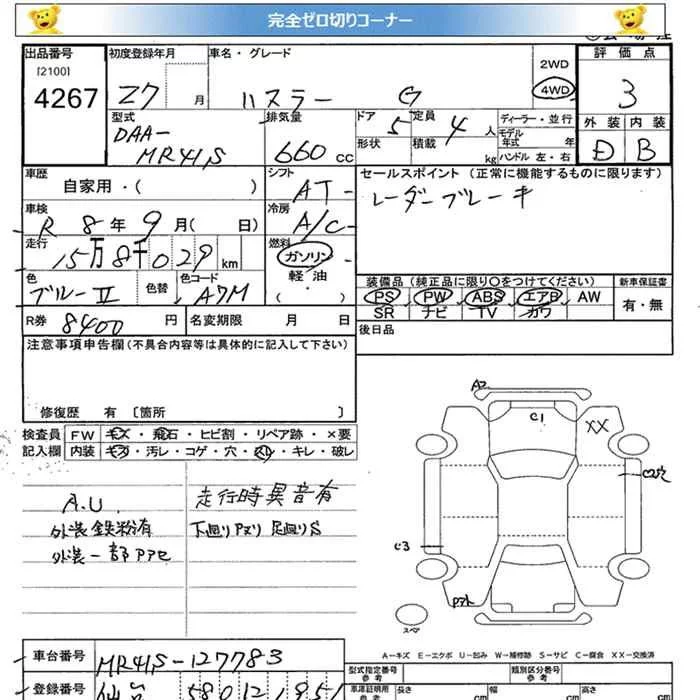 完全ゼロ切りコーナー
出品番号 初度登録年月 車名・グレード 評価点
[2100]
4267 27 月 ハスラー G 2WD 4WD 3
型式 排気量 ドア 定員 ディーラー・並行 外装 内装
DAA-
MR41S 660 cc 5 4 人 モデル年式 年 D B
形状 積載 kg ハンドル 左・右
車歴 シフト セールスポイント(正常に機能するものに限ります)
自家用・( ) AT レーダーブレーキ
車検 冷房
R 8 年 9 月( 日) A/C
走行 燃料
15万8千029 km ガソリン
軽・油
( )
色 色替 色コード 装備品(純正品に限り○をつけてください) 新車保証書
ブルーII A7M PS PW ABS エアB AW 有・無
SR ナビ TV カワ
R券 8400 円 名変期限 月 日 後日品
注意事項申告欄(不具合内容等は具体的に記入して下さい)
修復歴 有 〔箇所 〕
検査員 FW キズ・飛石・ヒビ割・リペア跡・×要
記入欄 内装 キズ・汚レ・コゲ・穴・スレ・キレ・破レ
A.U. 走行時異音有
外装鉄粉有 下廻りアオリ 足廻りS
外装一部アアセ
A2
C1
XX
C3
スペア
A-キズ E-エクボ U-凹み W-補修跡 S-サビ C-腐食 XX-交換済
車台番号 MR41S-127783
型式指定番号 類別区分番号
参考 参考
登録番号 仙台 580 12 1951
車庫証明用 長さ 幅 高さ
参考 cm cm cm